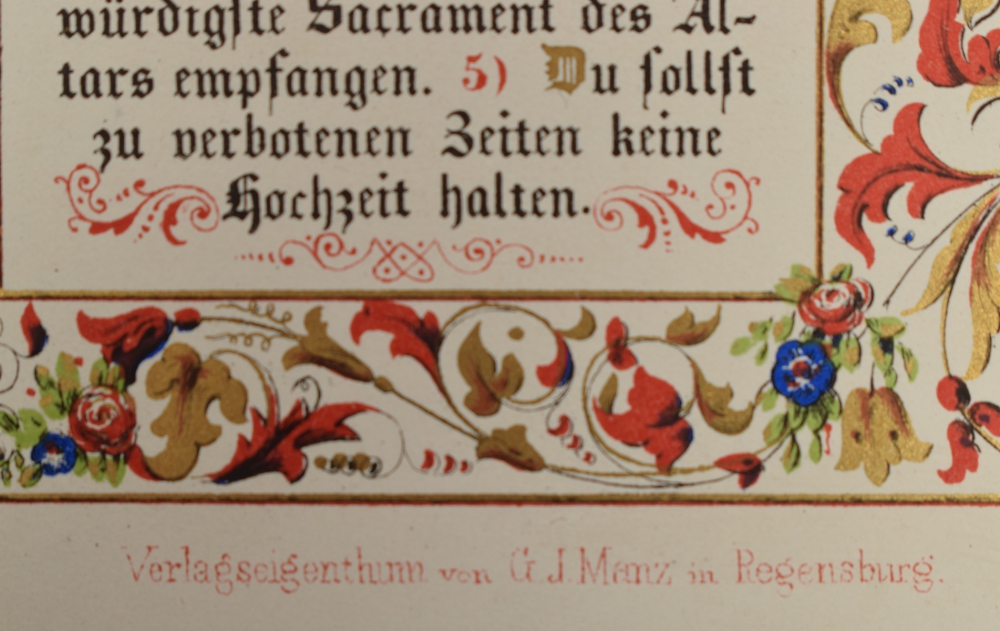 würdigſte Sacrament des Al-
tars empfangen. 5) Du ſollſt
zu verbotenen Zeiten keine
Hochzeit halten.
Verlagseigenthum von G. J. Manz in Regensburg.